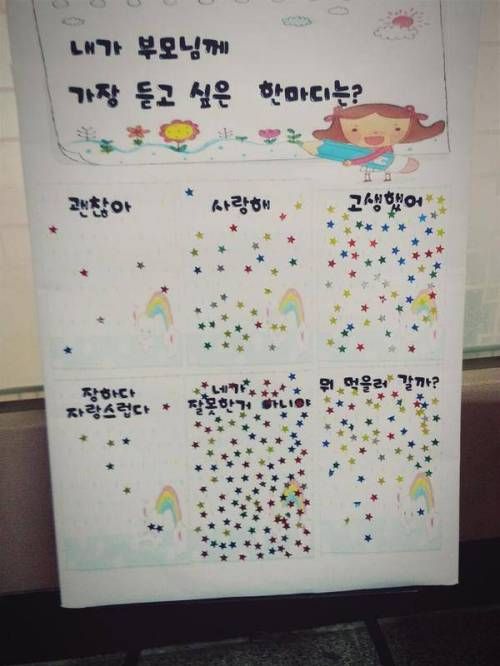 내가 부모님께
가장 듣고 싶은 한마디는?
괜찮아
사랑해
고생했어
장하다
자랑스럽다
네가
잘못한거 아니야
뭐 먹을러 갈까?